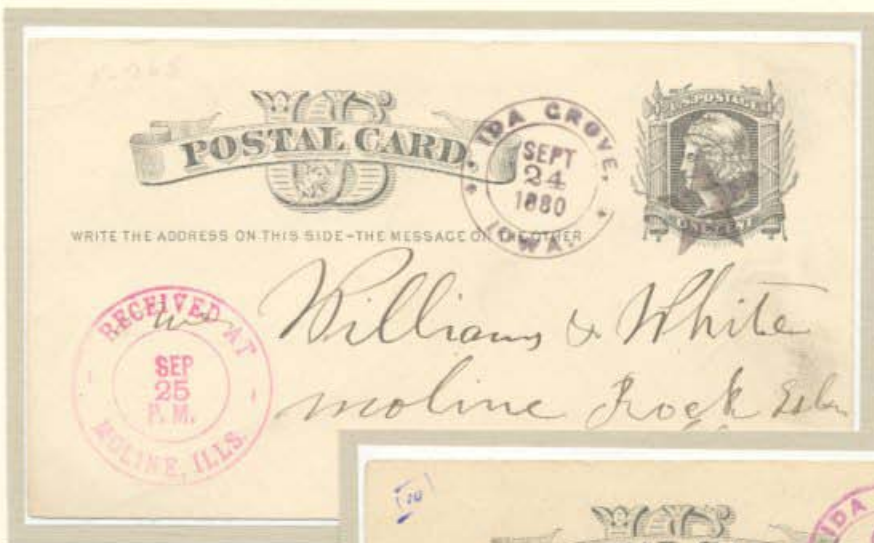 US
POSTAL CARD.
IDA GROVE,
SEPT
24
1880
IOWA.
U.S. POSTAGE
ONE CENT
WRITE THE ADDRESS ON THIS SIDE-THE MESSAGE ON THE OTHER
RECEIVED AT
SEP
25
P. M.
MOLINE, ILLS.
Williams & White
Moline Rock
10
US
IDA